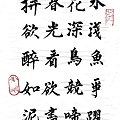 水淺魚爭躍
花深鳥競啼
春光看欲盡
拼卻醉如泥